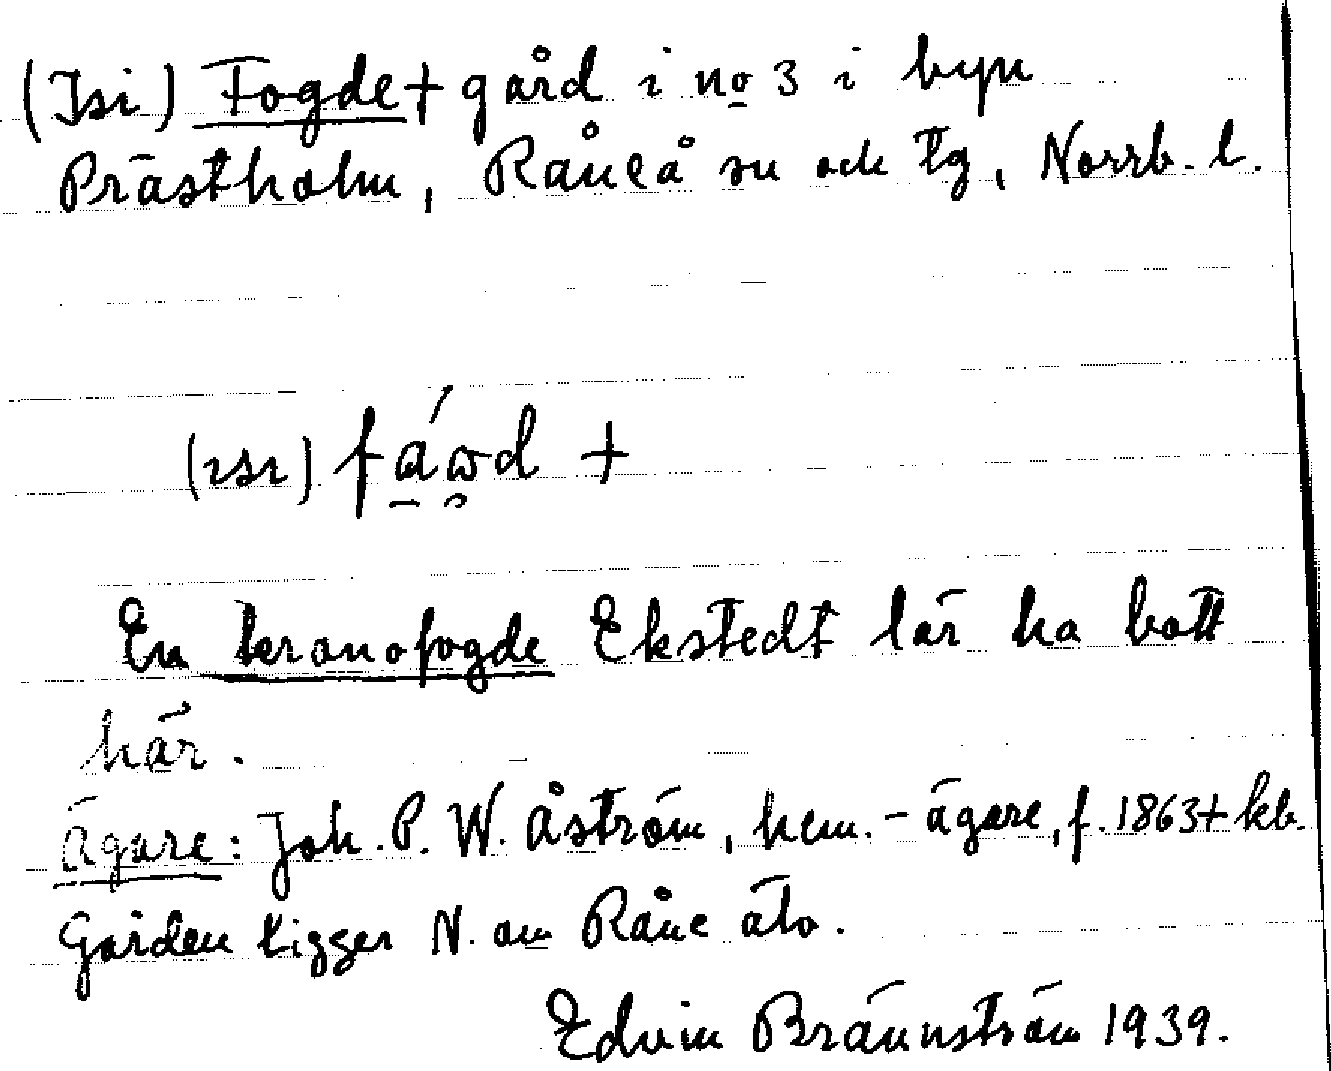 (Isi) Fogde + gård i no 3 i byn
Prästholm, Råneå sn och tg, Norrb. l.
(ısı) fáωd +
En kronofogde Ekstedt lär ha bott
här.
Ägare: Joh. P. W. Åström, hem.-ägare, f. 1863 + kb.
Gården ligger N. om Råne älv.
Edvin Brännström 1939.